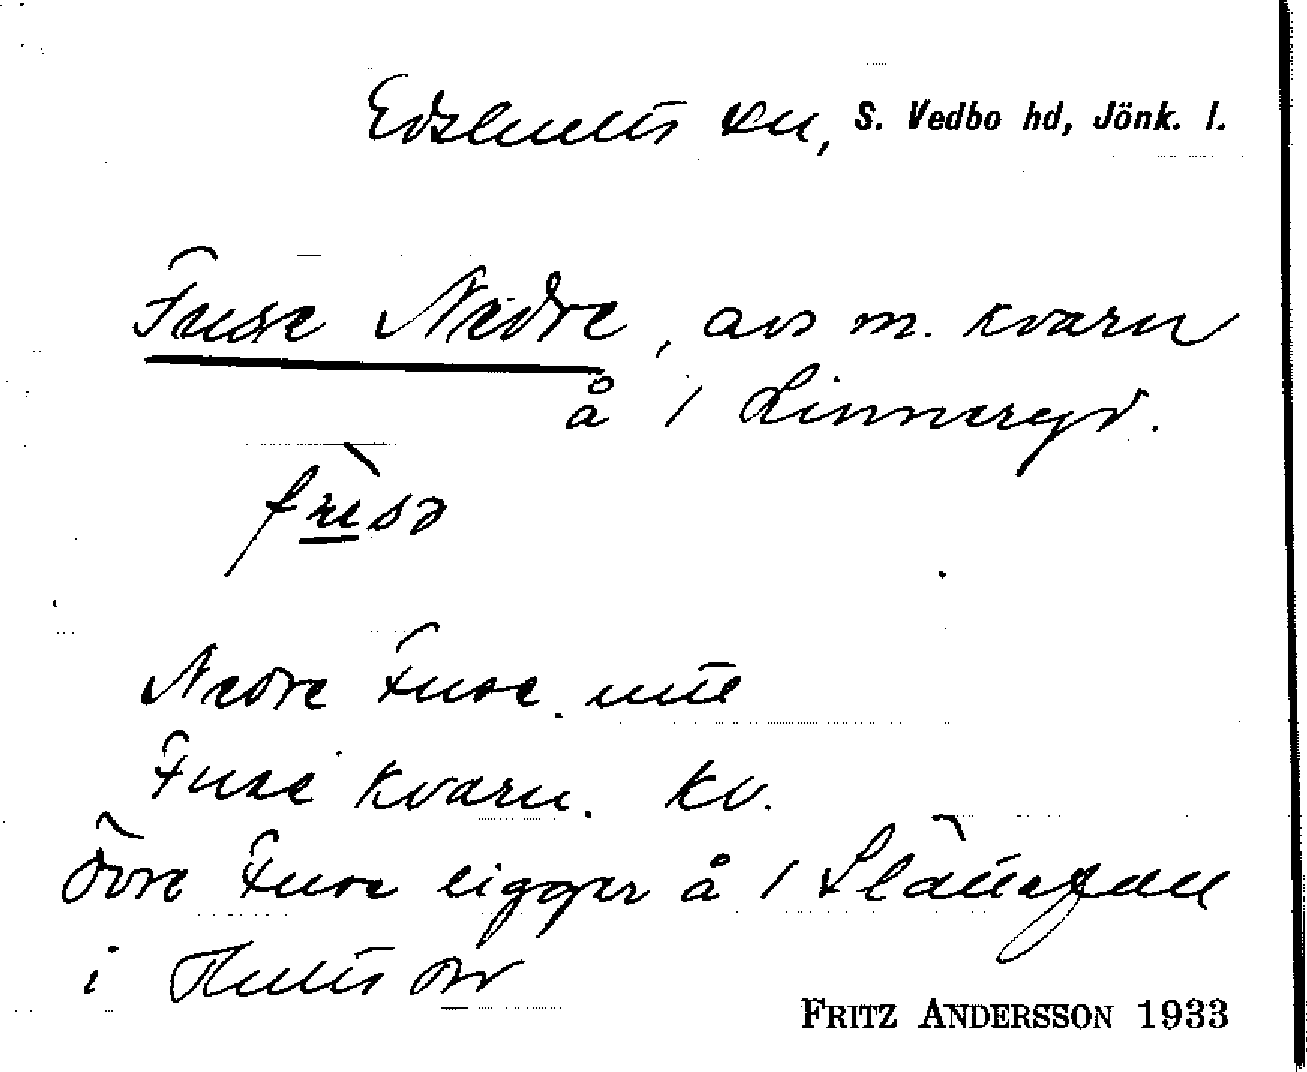 Edshults sn, S. Vedbo hd, Jönk. l.
Fuse Nedre, avs m. kvarn
å 1 Linneryd.
Nedre Fuse.
Fuse kvarn. kv.
Övre Fuse ligger å 1
i Hults sn
FRITZ ANDERSSON 1933